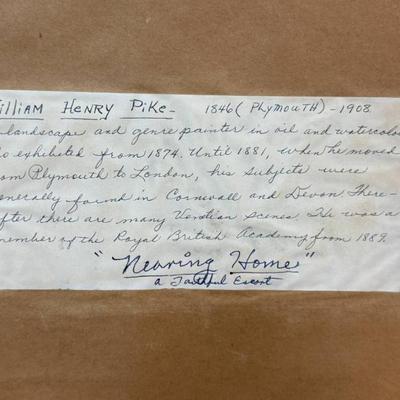 illiam Henry Pike - 1846 (Plymouth) - 1908
landscape and genre painter in oil and watercolou
o exhibited from 1874. Until 1881, when he moved
om Plymouth to London, his subjects were
enerally found in Cornwall and Devon. There-
fter there are many Venetian Scenes. He was a
member of the Royal British Academy from 1889.
"Nearing Home"
a Faithful Escort